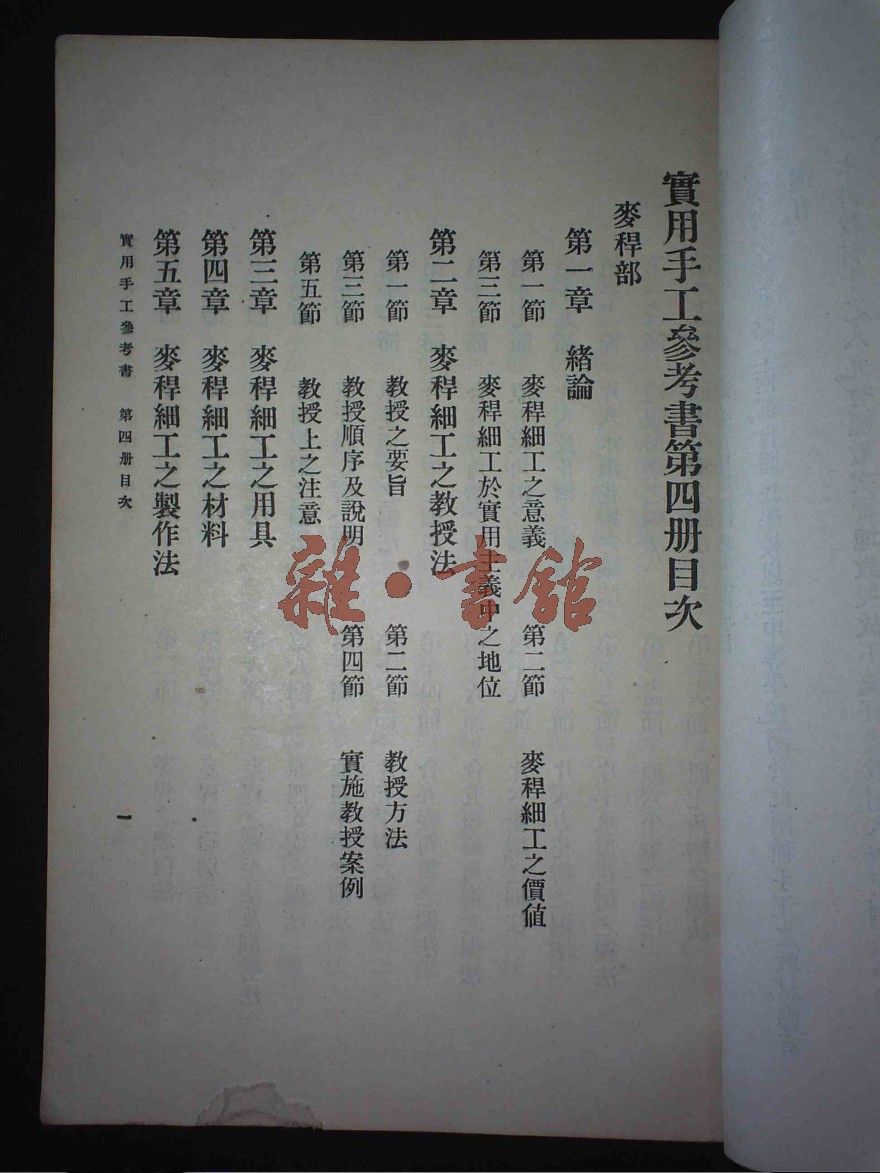 實用手工參考書第四册目次
麥稈部
第一章 緒論
第一節 麥稈細工之意義 第二節 麥稈細工之價値
第三節 麥稈細工於實用主義中之地位
第二章 麥稈細工之教授法
第一節 教授之要旨 第二節 教授方法
第三節 教授順序及說明 第四節 實施教授案例
第五節 教授上之注意
第三章 麥稈細工之用具
第四章 麥稈細工之材料
第五章 麥稈細工之製作法
實用手工參考書 第四册目次
一
雜·書館